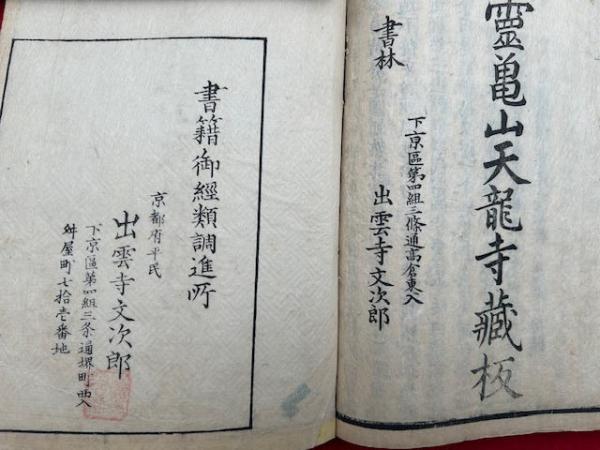 靈亀山天龍寺藏板
書林
下京區第四組三條通高倉東入
出雲寺文次郎
書籍御經類調進所
京都府平民
出雲寺文次郎
下京區第四組三条通堺町西入
舛屋町七拾壱番地